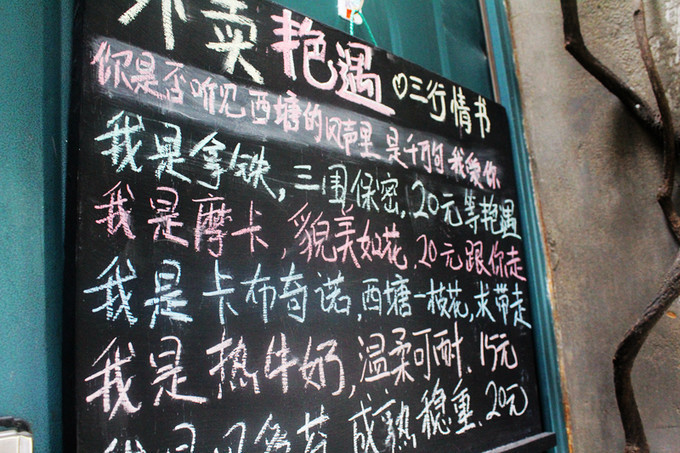 外卖 艳遇 三行情书
你是否听见西塘的风声里 是千万句我爱你
我是拿铁,三围保密,20元等艳遇
我是摩卡,貌美如花,20元跟你走
我是卡布奇诺,西塘一枝花,求带走
我是热牛奶,温柔可耐.15元
我是 成熟稳重.20元